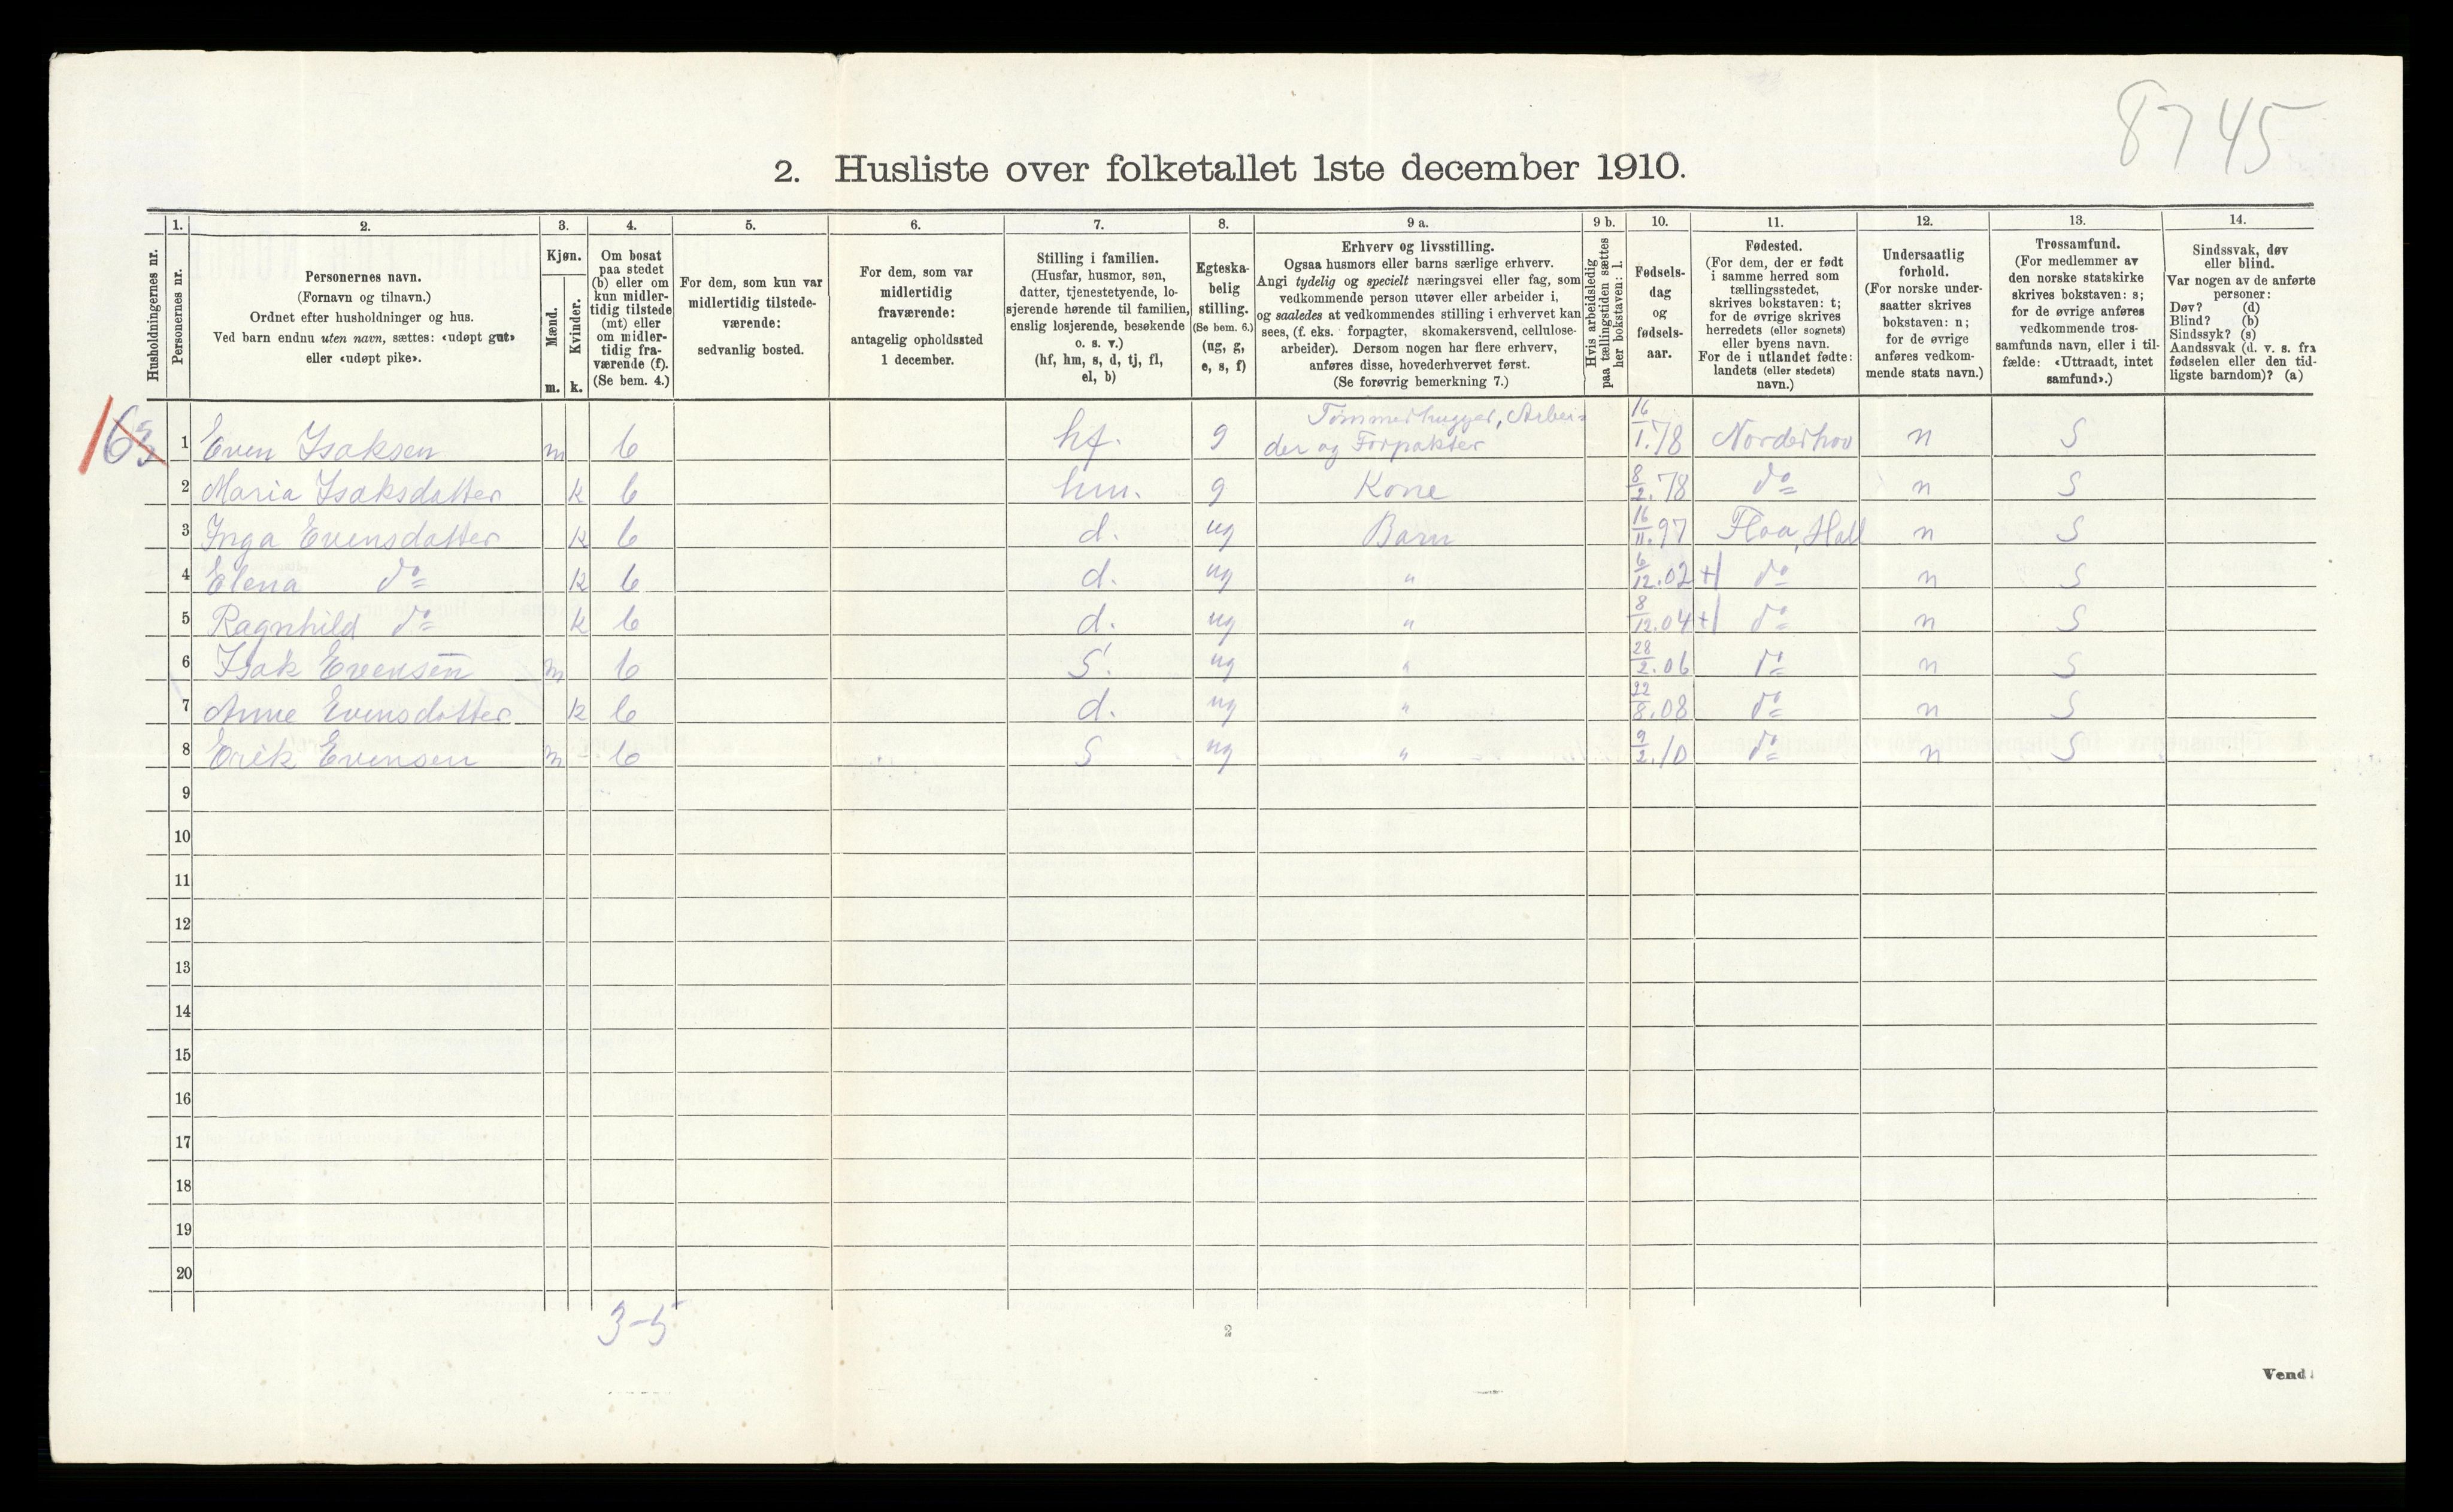 8745
2. Husliste over folketallet 1ste december 1910.
Husholdningernes nr.
1.
Personernes nr.
2.
Personernes navn.
(Fornavn og tilnavn.)
Ordnet efter husholdninger og hus.
Ved barn endnu uten navn, sættes: «udøpt gut»
eller «udøpt pike».
3.
Kjøn.
Mænd.
m.
Kvinder.
k.
4.
Om bosat
paa stedet
(b) eller om
kun midler-
tidig tilstede
(mt) eller
om midler-
tidig fra-
værende (f).
(Se bem. 4.)
5.
For dem, som kun var
midlertidig tilstede-
værende:
sedvanlig bosted.
6.
For dem, som var
midlertidig
fraværende:
antagelig opholdssted
1 december.
7.
Stilling i familien.
(Husfar, husmor, søn,
datter, tjenestetyende, lo-
sjerende hørende til familien,
enslig losjerende, besøkende
o. s. v.)
(hf, hm, s, d, tj, fl,
el, b)
8.
Egteska-
belig
stilling.
(Se bem. 6.)
(ug, g,
e, s, f)
9 a.
Erhverv og livsstilling.
Ogsaa husmors eller barns særlige erhverv.
Angi tydelig og specielt næringsvei eller fag, som
vedkommende person utøver eller arbeider i,
og saaledes at vedkommendes stilling i erhvervet kan
sees, (f. eks. forpagter, skomakersvend, cellulose-
arbeider). Dersom nogen har flere erhverv,
anføres disse, hovederhvervet først.
(Se forøvrig bemerkning 7.)
9 b.
Hvis arbeidsledig
paa tællingstiden sættes
her bokstaven: l.
10.
Fødsels-
dag
og
fødsels-
aar.
11.
Fødested.
(For dem, der er født
i samme herred som
tællingsstedet,
skrives bokstaven: t;
for de øvrige skrives
herredets (eller sognets)
eller byens navn.
For de i utlandet fødte:
landets (eller stedets)
navn.)
12.
Undersaatlig
forhold.
(For norske under-
saatter skrives
bokstaven: n;
for de øvrige
anføres vedkom-
mende stats navn.)
13.
Trossamfund.
(For medlemmer av
den norske statskirke
skrives bokstaven: s;
for de øvrige anføres
vedkommende tros-
samfunds navn, eller i til-
fælde: «Uttraadt, intet
samfund».)
14.
Sindssvak, døv
eller blind.
Var nogen av de anførte
personer:
Døv? (d)
Blind? (b)
Sindssyk? (s)
Aandssvak (d. v. s. fra
fødselen eller den tid-
ligste barndom)? (a)
1 Even Isaksen m b hf. g Tømmerhugger, Arbei-
der og Forpakter 16/1.78 Norderhov n S
2 Maria Isaksdatter k b hm. g Kone 8/2.78 do n S
3 Inga Evensdatter k b d. ug Barn 16/11.97 Flaa, Hall n S
4 Elena do k b d. ug " 6/12.02 + do n S
5 Ragnhild do k b d. ug " 8/12.04 + do n S
6 Isak Evensen m b S. ug " 28/2.06 do n S
7 Anne Evensdatter k b d. ug " 22/8.08 do n S
8 Erik Evensen m - b S ug " 9/2.10 do n S
9
10
11
12
13
14
15
16
17
18
19
20
3-5
2
Vend!